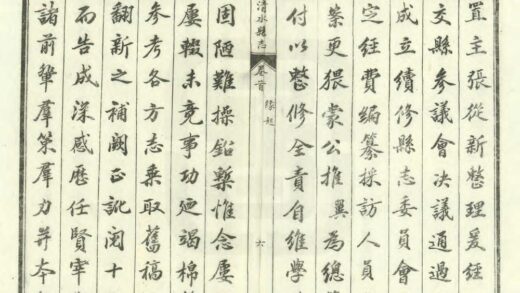 置主張從新整理爰經
交縣參議會決議通過
成立續修縣志委員會
定經費編纂採訪人員
榮更猥蒙公推翼為總
付以整修全責自維學
清水縣志
卷首
緣起
六
固陋難操鉛槧惟念屢
屢輟未竟事功廼竭棉
參考各方志乘取舊稿
翻新之補闕正訛閱十
而告成深感歷任賢宰
諸前輩羣策羣力并本